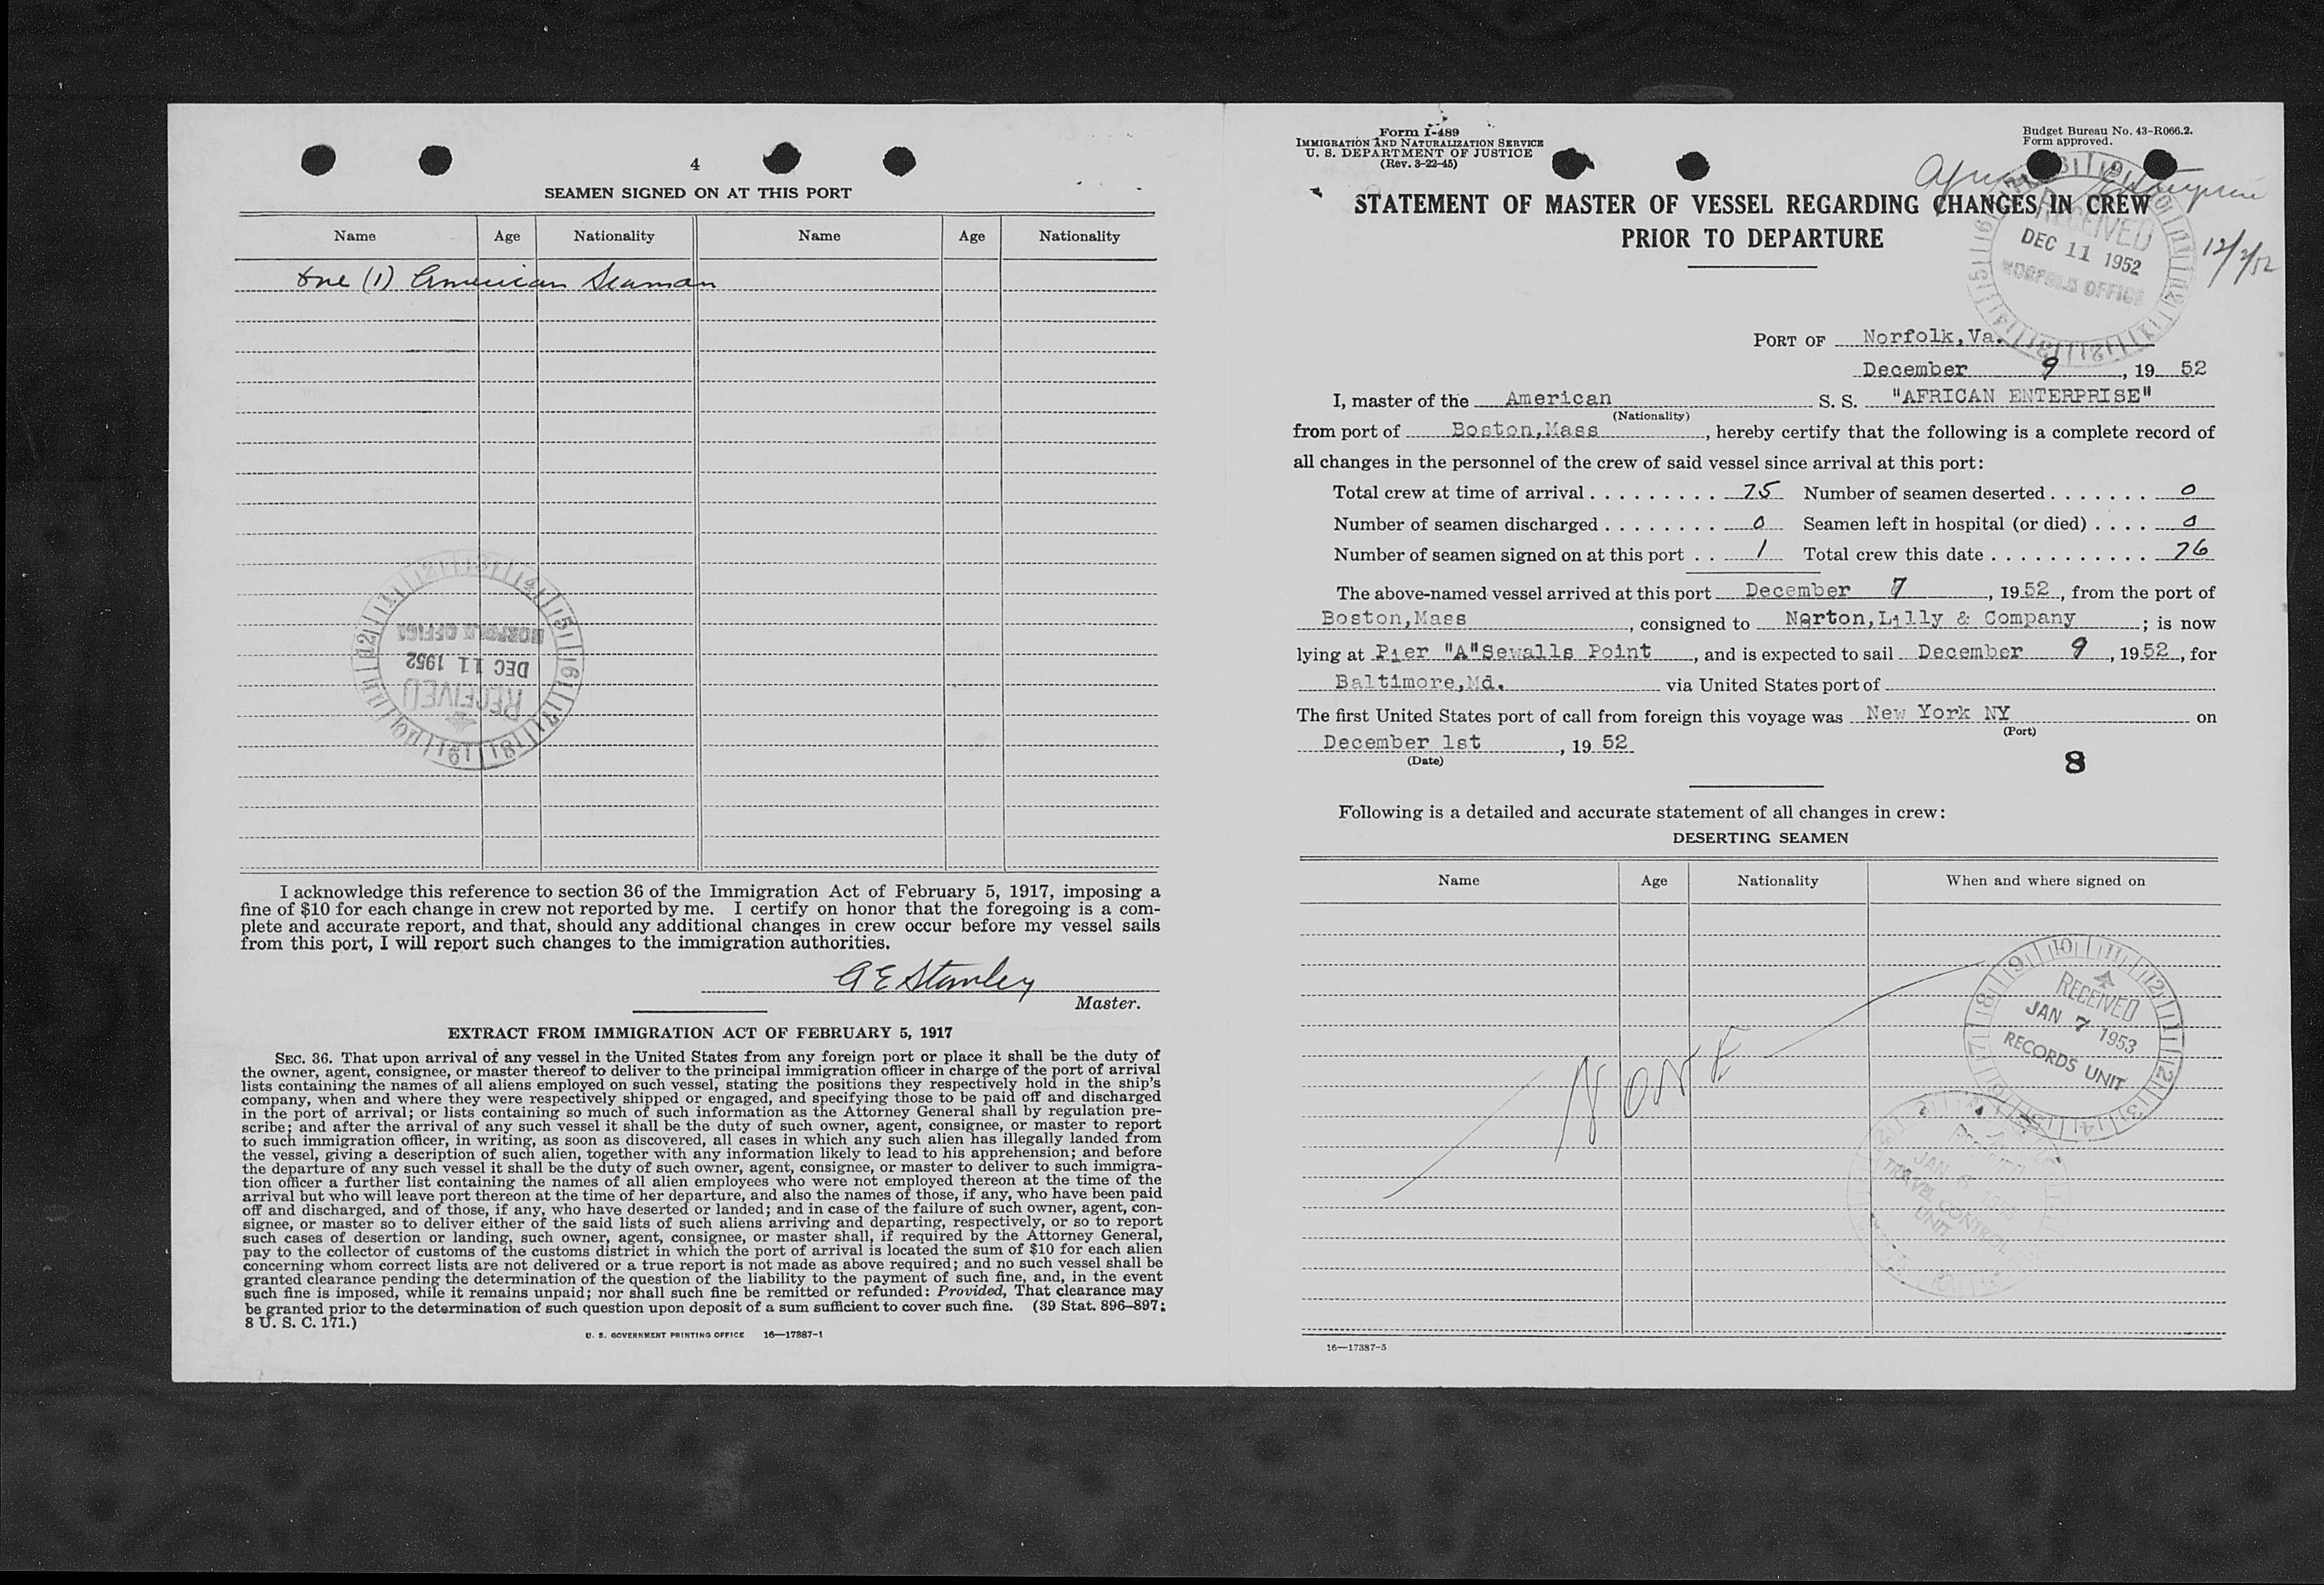 4
SEAMEN SIGNED ON AT THIS PORT
Name Age Nationality Name Age Nationality
One (1) American Seaman
RECEIVED
DEC 11 1952
NORFOLK OFFICE
I acknowledge this reference to section 36 of the Immigration Act of February 5, 1917, imposing a
fine of $10 for each change in crew not reported by me. I certify on honor that the foregoing is a com-
plete and accurate report, and that, should any additional changes in crew occur before my vessel sails
from this port, I will report such changes to the immigration authorities.
A E Stanley
Master.
EXTRACT FROM IMMIGRATION ACT OF FEBRUARY 5, 1917
SEC. 36. That upon arrival of any vessel in the United States from any foreign port or place it shall be the duty of
the owner, agent, consignee, or master thereof to deliver to the principal immigration officer in charge of the port of arrival
lists containing the names of all aliens employed on such vessel, stating the positions they respectively hold in the ship's
company, when and where they were respectively shipped or engaged, and specifying those to be paid off and discharged
in the port of arrival; or lists containing so much of such information as the Attorney General shall by regulation pre-
scribe; and after the arrival of any such vessel it shall be the duty of such owner, agent, consignee, or master to report
to such immigration officer, in writing, as soon as discovered, all cases in which any such alien has illegally landed from
the vessel, giving a description of such alien, together with any information likely to lead to his apprehension; and before
the departure of any such vessel it shall be the duty of such owner, agent, consignee, or master to deliver to such immigra-
tion officer a further list containing the names of all alien employees who were not employed thereon at the time of the
arrival but who will leave port thereon at the time of her departure, and also the names of those, if any, who have been paid
off and discharged, and of those, if any, who have deserted or landed; and in case of the failure of such owner, agent, con-
signee, or master so to deliver either of the said lists of such aliens arriving and departing, respectively, or so to report
such cases of desertion or landing, such owner, agent, consignee, or master shall, if required by the Attorney General,
pay to the collector of customs of the customs district in which the port of arrival is located the sum of $10 for each alien
concerning whom correct lists are not delivered or a true report is not made as above required; and no such vessel shall be
granted clearance pending the determination of the question of the liability to the payment of such fine, and, in the event
such fine is imposed, while it remains unpaid; nor shall such fine be remitted or refunded: Provided, That clearance may
be granted prior to the determination of such question upon deposit of a sum sufficient to cover such fine. (39 Stat. 896–897;
8 U. S. C. 171.)
U. S. GOVERNMENT PRINTING OFFICE 16—17387-1
Form I-489
IMMIGRATION AND NATURALIZATION SERVICE
U. S. DEPARTMENT OF JUSTICE
(Rev. 3-22-45)
Budget Bureau No. 43-R066.2.
Form approved.
African Enterprise
12/2/52
STATEMENT OF MASTER OF VESSEL REGARDING CHANGES IN CREW
PRIOR TO DEPARTURE
RECEIVED
DEC 11 1952
NORFOLK OFFICE
PORT OF Norfolk,Va.
December 9, 19 52
I, master of the American S. S. "AFRICAN ENTERPRISE"
(Nationality)
from port of Boston,Mass, hereby certify that the following is a complete record of
all changes in the personnel of the crew of said vessel since arrival at this port:
Total crew at time of arrival . . . . . . . . . 75 Number of seamen deserted . . . . . . . 0
Number of seamen discharged . . . . . . . . 0 Seamen left in hospital (or died) . . . . 0
Number of seamen signed on at this port . . 1 Total crew this date . . . . . . . . . . . 76
The above-named vessel arrived at this port December 7, 1952, from the port of
Boston,Mass, consigned to Norton,Lilly & Company; is now
lying at Pier "A"Sewalls Point, and is expected to sail December 9, 1952, for
Baltimore,Md. via United States port of
The first United States port of call from foreign this voyage was New York NY on
(Port)
December 1st, 19 52
(Date)
8
Following is a detailed and accurate statement of all changes in crew:
DESERTING SEAMEN
Name Age Nationality When and where signed on
NONE
RECEIVED
JAN 7 1953
RECORDS UNIT
JAN 6
TRAVEL CONTROL
UNIT
16—17387-5